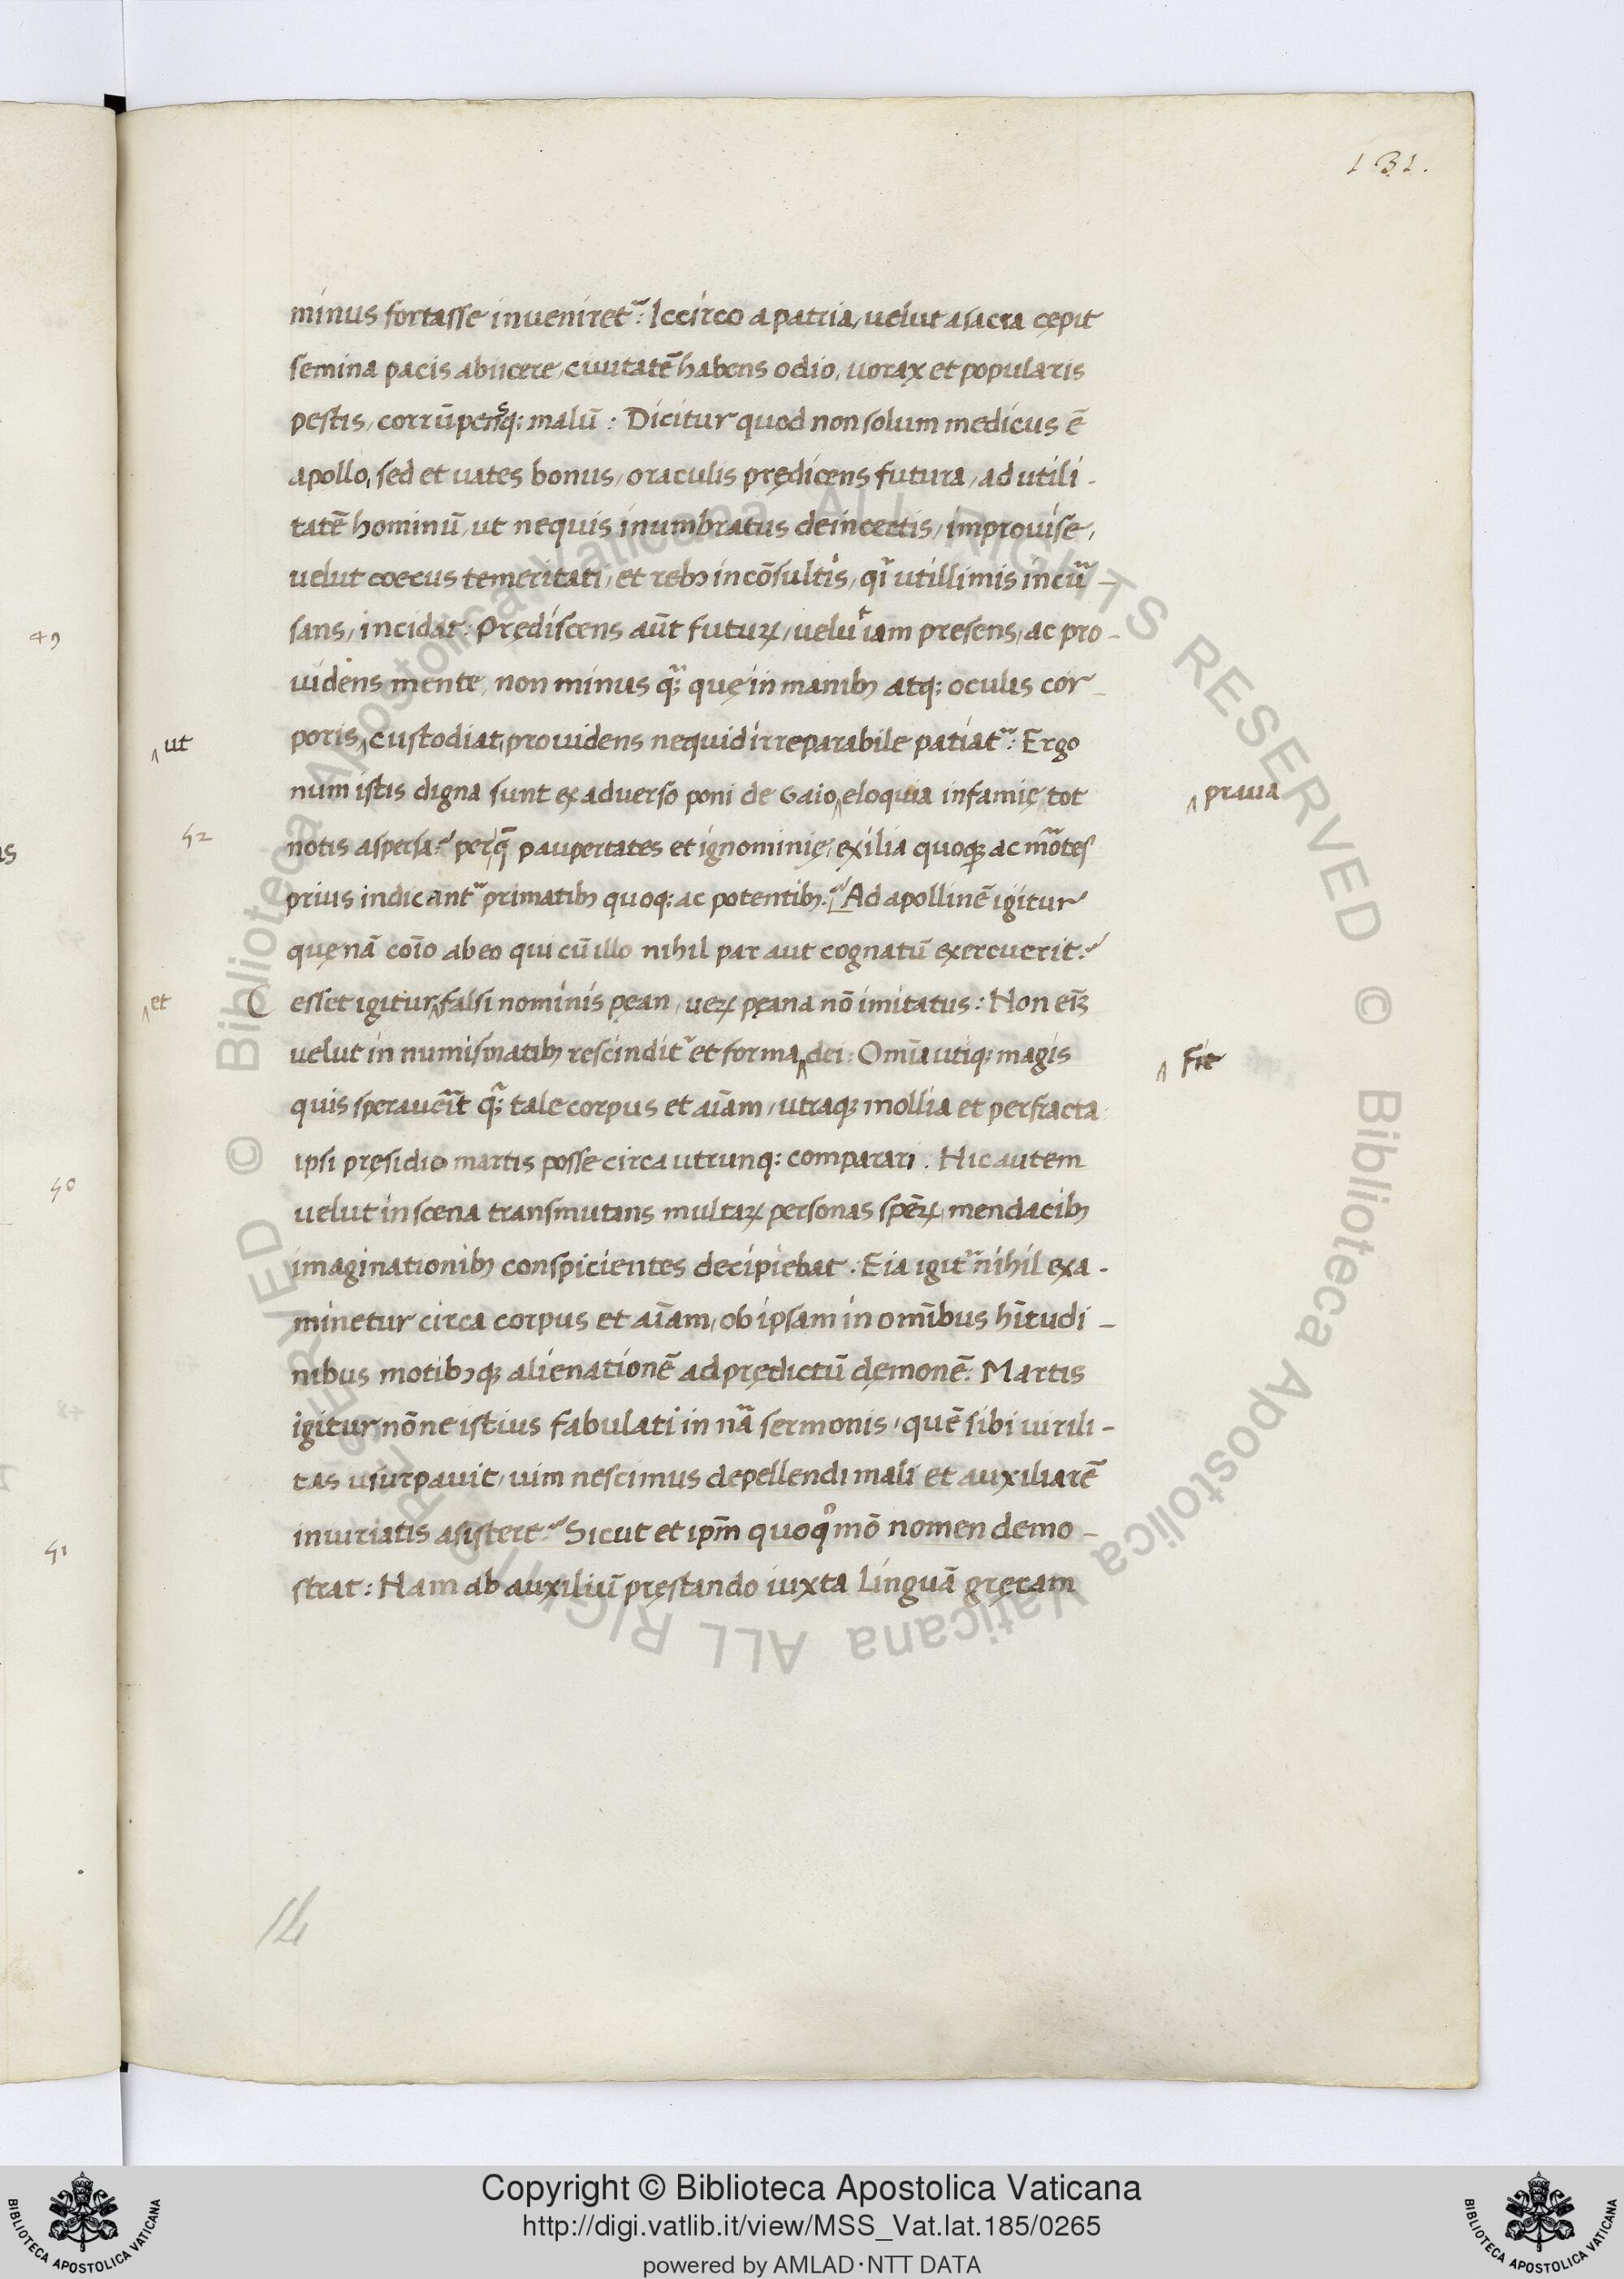 131.
minus fortasse inueniret᷑: Iccirco a patria, uelut a sacra cępit
semina pacis abiicere, ciuitatē habens odio, uorax et popularis
pestis, corrūpensq; malū: Dicitur quod non solum medicus ē
apollo, sed et uates bonus, oraculis prędicens futura, ad utili-
tatē hominū, ut nequis inumbratus deincertis, improuise,
uelut coecus temeritati, et rebꝫ incōsultis, qi̅ utillimis incu᷑-
49
sans, incidat: Prędiscens aūt futurꝝ, uelut iam presens, ac pro-
uidens mente, non minus q᷑; quę in manibꝫ atq; oculis cor-
‸ut
poris‸ custodiat, prouidens nequid irreparabile patiat᷑: Ergo
num istis digna sunt ex aduerso poni de Gaio‸ eloquia infamię tot
‸praua
52
notis aspersa? perq̄ paupertates et ignominię, exilia quoqꝫ ac mo᷑tes
prius indicant᷑ primatibꝫ quoq; ac potentibꝫ? Ad apollinē igitur
quę nā cōio ab eo qui cū illo nihil par aut cognatū exercuerit?
‸et
esset igitur‸ falsi nominis pęan, uerꝝ pęana nō imitatus: Non eīꝫ
uelut in numismatibꝫ rescindit᷑ et forma‸ dei: Om̄ia utiq; magis
‸fit
quis sperauei᷑t q᷑; tale corpus et aīam, utraqꝫ mollia et perfracta
ipsi pręsidio martis posse circa utrunq; comparari. Hic autem
50
uelut in scena transmutans multaꝝ personas spēꝝ, mendacibꝫ
imaginationibꝫ conspicientes decipiebat: Eia igit᷑ nihil exa-
minetur circa corpus et aīam, ob ipsam in om̄ibus hītudi-
nibus motibꝫqꝫ alienationē ad prędictū dęmonē: Martis
igitur nōne istius fabulati in na᷑ sermonis, quē sibi uirili-
tas usurpauit, uim nescimus depellendi mali et auxiliarē
51
iniuriatis asistere? Sicut et ipm̄ quoq̊ mō nomen demo-
strat: Nam ab auxiliū pręstando iuxta linguā gręcam
14
Copyright © Biblioteca Apostolica Vaticana
http://digi.vatlib.it/view/MSS_Vat.lat.185/0265
powered by AMLAD·NTT DATA
BIBLIOTECA APOSTOLICA VATICANA
BIBLIOTECA APOSTOLICA VATICANA
© Biblioteca Apostolica Vaticana ALL RIGHTS RESERVED © Biblioteca Apostolica Vaticana ALL RIGHTS RESERVED